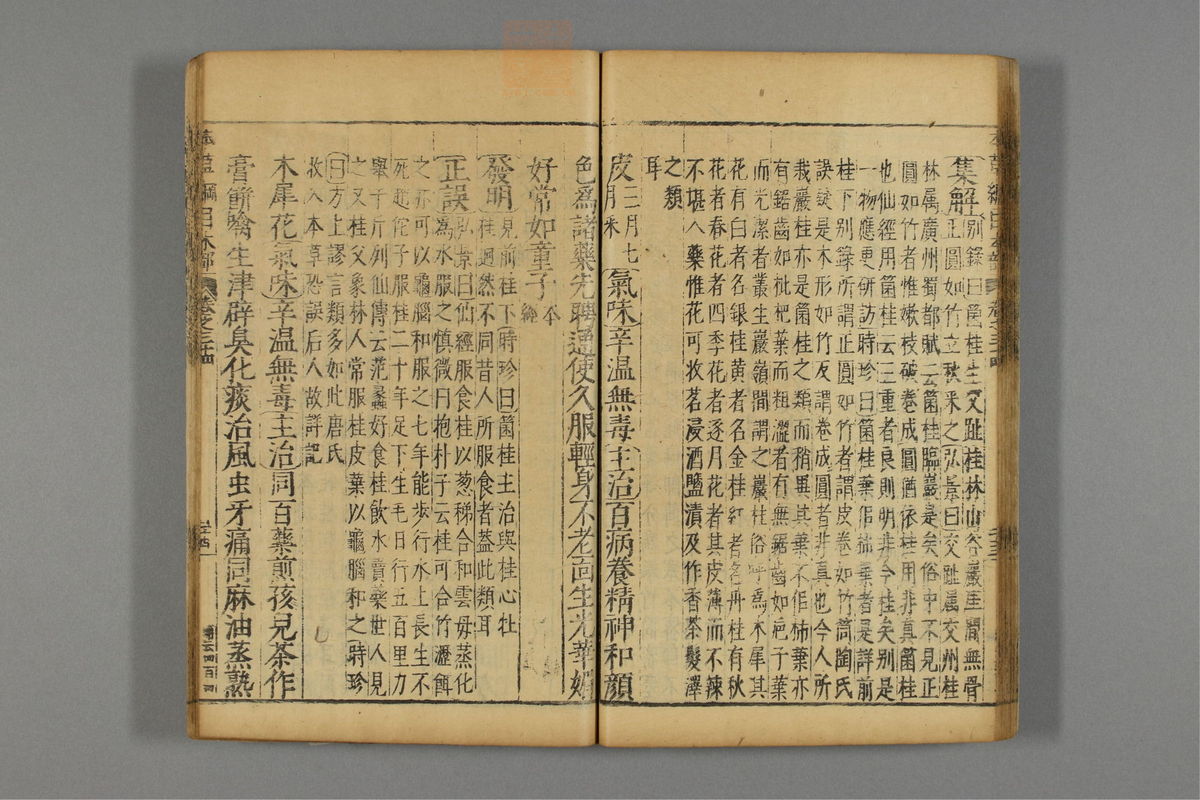 集解別錄曰箘桂生交趾桂林山谷巖崖間無骨
正圓如竹立秋采之弘景曰交趾屬交州桂
林屬廣州蜀都賦云箘桂臨巖是矣俗中不見正
圓如竹者惟嫩枝破卷成圓猶依桂用非真箘桂
也仙經用箘桂云三重者良則明非今桂矣別是
一物應更研訪時珍曰箘桂葉似柿葉者是詳前
桂下別錄所謂正圓如竹者謂皮卷如竹筒陶氏
誤疑是木形如竹反謂卷成圓者非真也今人所
栽巖桂亦是箘桂之類而稍異其葉不似柿葉亦
有鋸齒如枇杷葉而粗澀者有無鋸齒如巵子葉
而光潔者叢生巖嶺間謂之巖桂俗呼爲木犀其
花有白者名銀桂黃者名金桂紅者名丹桂有秋
花者春花者四季花者逐月花者其皮薄而不辣
不堪入藥惟花可收茗浸酒鹽漬及作香茶髮澤
之類
耳
皮三月七
月采氣味辛温無毒主治百病養精神和顏
色爲諸藥先聘通使久服輕身不老面生光華媚
好常如童子本
經
發明見前桂下時珍曰箘桂主治與桂心牡
桂迥然不同昔人所服食者蓋此類耳
正誤弘景曰仙經服食桂以葱稀合和雲母蒸化
爲水服之慎微曰抱朴子云桂可合竹瀝餌
之亦可以龜腦和服之七年能步行水上長生不
死趙佗子服桂二十年足下生毛日行五百里力
舉千斤列仙傳云范蠡好食桂飲水賣藥世人見
之又桂父象林人常服桂皮葉以龜腦和之時珍
曰方士謬言類多如此唐氏
收入本草恐誤后人故詳記
木犀花氣味辛温無毒主治同百藥煎孩兒茶作
膏餅噙生津辟臭化痰治風虫牙痛同麻油蒸熟